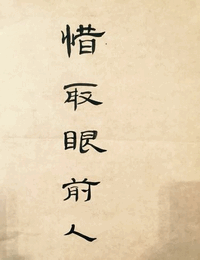 惜取眼前人